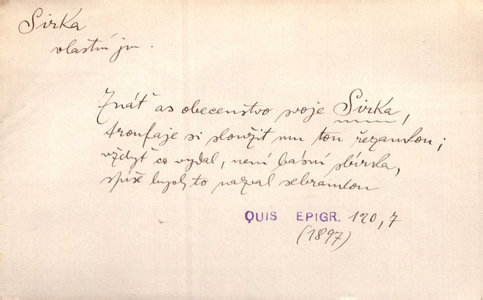 Sirka
vlastní jm.
Znáť as obecenstvo svoje Sirka,
troufaje si sloužit mu touž řezankou;
vždyť co vydal, není básní sbírka,
spíše bych to nazval sebrankou
QUIS EPIGR. 120, 7
(1897)